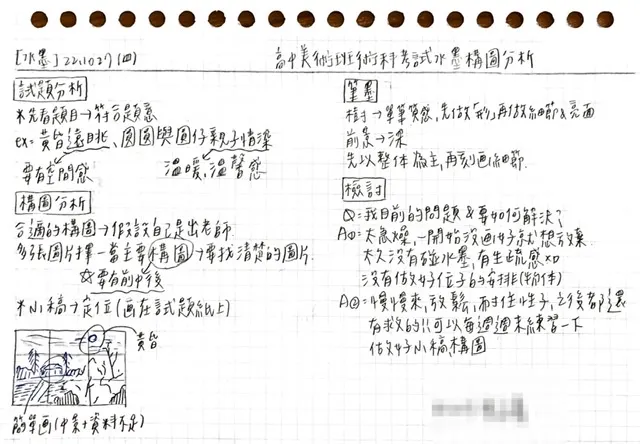 [水墨] 22.10.27(四)
高中美術班術科考試水墨構圖分析
試題分析
*先看題目→符合題意
ex=黃昏遠眺、圓圓與圓仔親子情深
要有空間感
溫暖、溫馨感
構圖分析
合適的構圖→假設自己是出老師
多張圖片擇一當主要構圖→要找清楚的圖片
☆要有前中後
*小稿→定位(画在試題紙上)
黃昏
簡單画(中景+資料不足)
筆墨
樹→單筆質感,先做「形」再做細節&亮面
前景→深
先以整体為主,再刻画細節.
檢討
Q=我目前的問題&要如何解決?
A①=太急燥,一開始沒画好就想放棄
太久沒有碰水墨,有生疏感
沒有做好位子的安排(物体)
A②=慢慢來,放鬆,耐住性子,之後都還
有救的!!可以每週週末練習一下
做好小稿,構圖